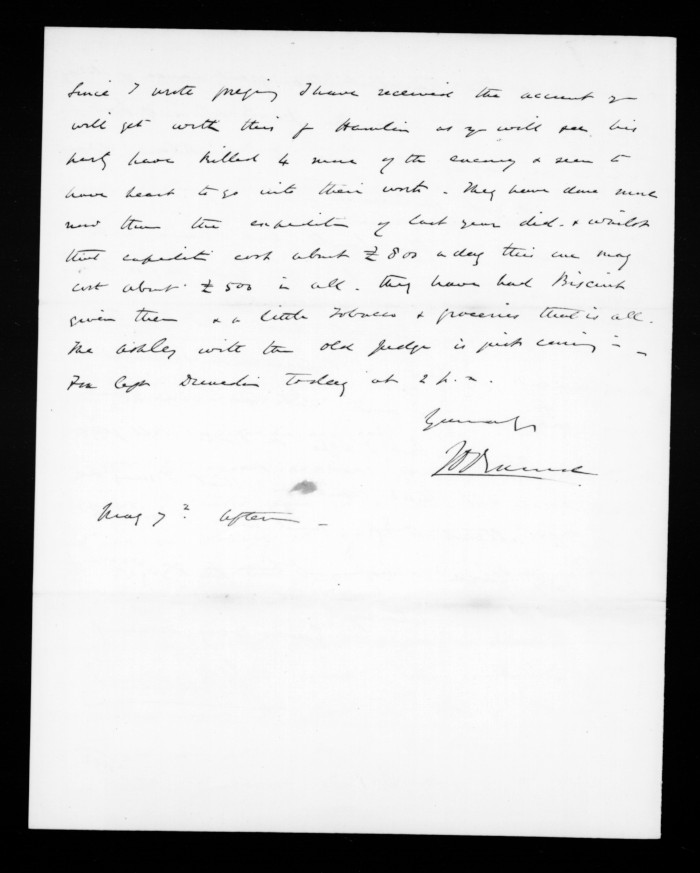 Since I wrote preceding I have received the account yr
will get with this fr Hamlin as yr will see his
party have killed 4 more of the enemy & seem to
have heart to go into their work. They have done more
now than the expeditn of last year did. & whilst
that expeditn cost about £800 a day this one may
cost about £500 in all. they have had Biscuit
given them & a little Tobacco & groceries that is all.
The Ashley with the old Judge is just coming in _
Capt today at 2 p.m.
Yours
May 7 Aftern _